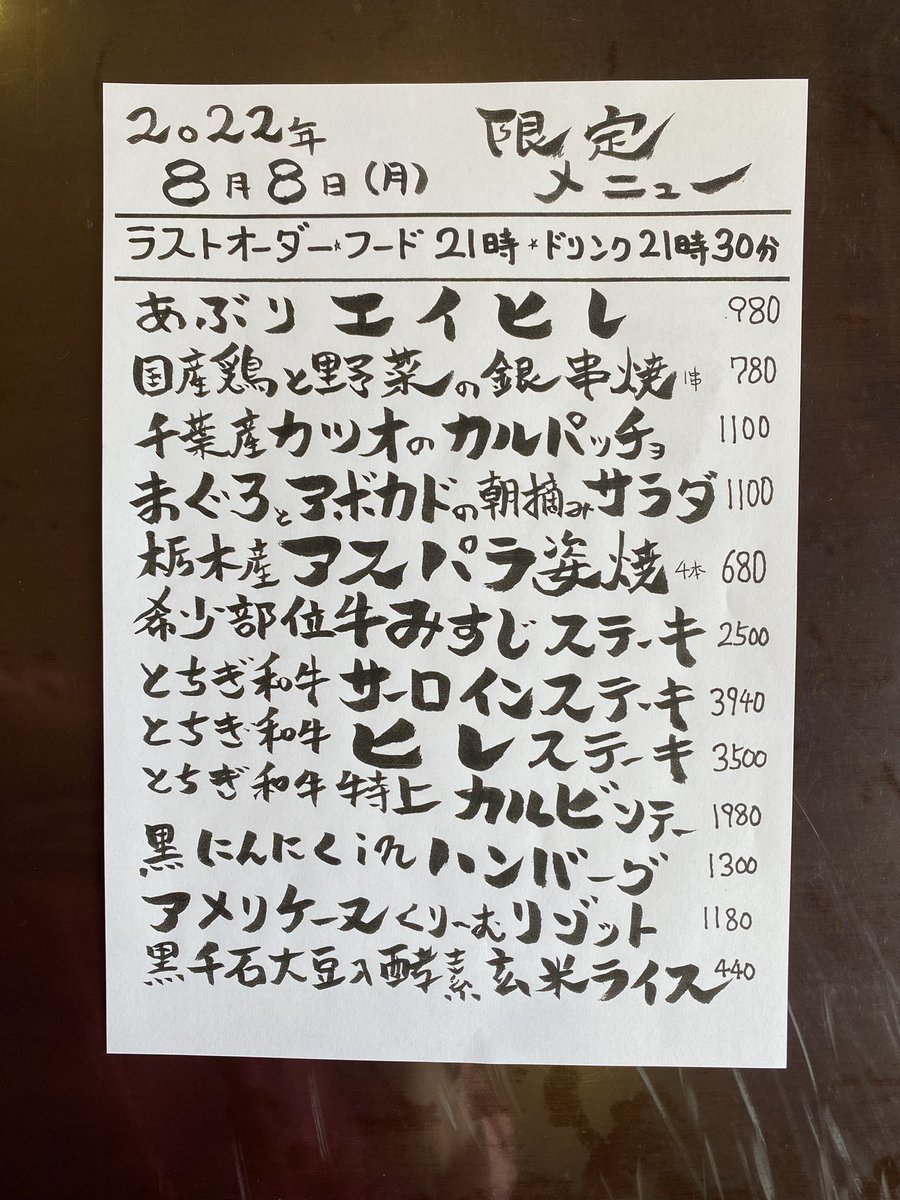 2022年 限定
8月8日(月) メニュー
ラストオーダー★フード 21時★ドリンク21時30分
あぶり エイヒレ 980
国産鶏と野菜の銀串焼 1串 780
千葉産カツオのカルパッチョ 1100
まぐろとアボカドの朝摘みサラダ 1100
栃木産アスパラ姿焼 4本 680
希少部位牛みすじステーキ 2500
とちぎ和牛 サーロインステーキ 3940
とちぎ和牛 ヒレステーキ 3500
とちぎ和牛 特上 カルビソテー 1980
黒にんにくinハンバーグ 1300
アメリケーヌくりーむリゾット 1180
黒千石大豆入酵素玄米ライス 440